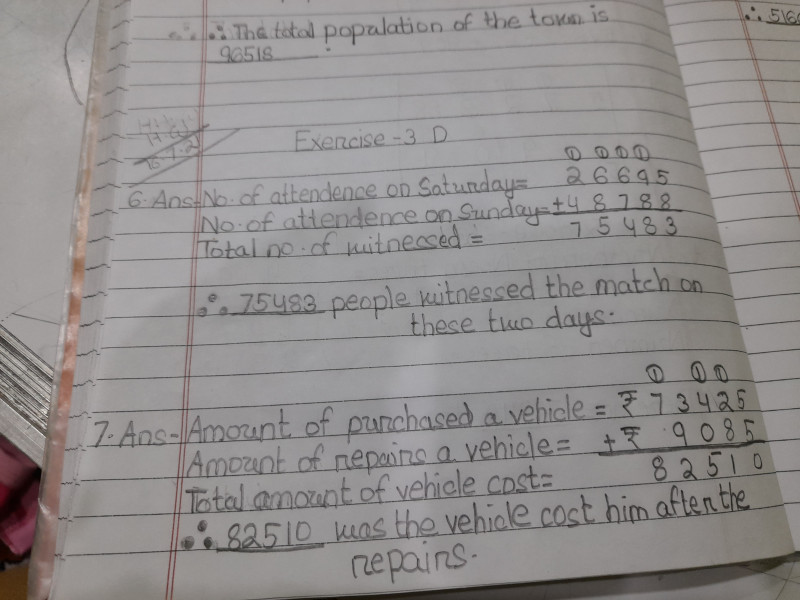 ∴ The total population of the town is
96518.
∴ 516
Exercise-3 D
① ①①①
6. Ans- No. of attendence on Saturday= 26695
No. of attendence on Sunday=+48788
Total no. of witnessed = 75483
∴ 75483 people witnessed the match on
these two days.
① ①①
7. Ans- Amount of purchased a vehicle = ₹ 73425
Amount of repairs a vehicle= +₹ 9085
Total amount of vehicle cost= 82510
∴ 82510 was the vehicle cost him after the
repairs.